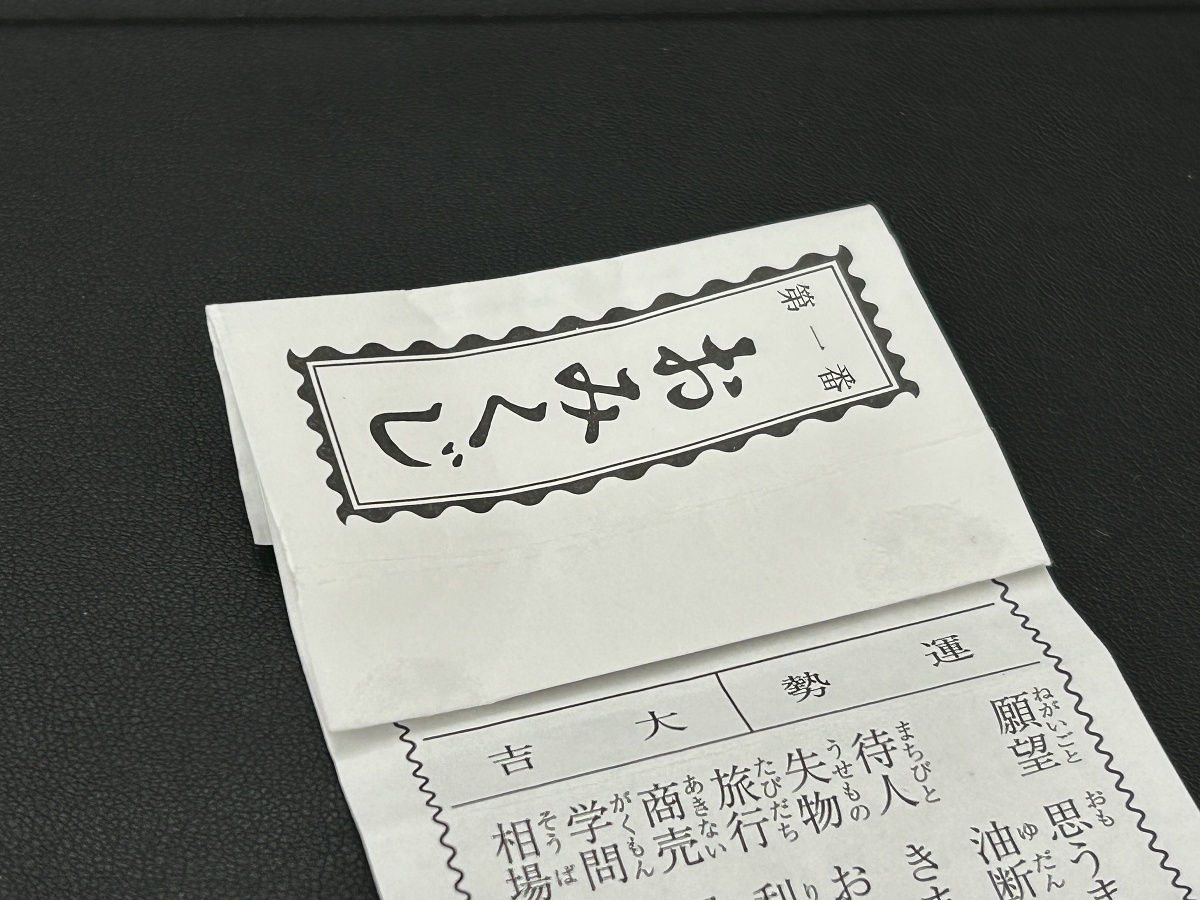 第一番
おみくじ
運勢 大吉
願望 思うま
ねがいごと おも
油断
ゆだん
待人 き
まちびと
失物 お
うせもの
旅行 利
たびだち り
商売
あきない
学問
がくもん
相場
そうば